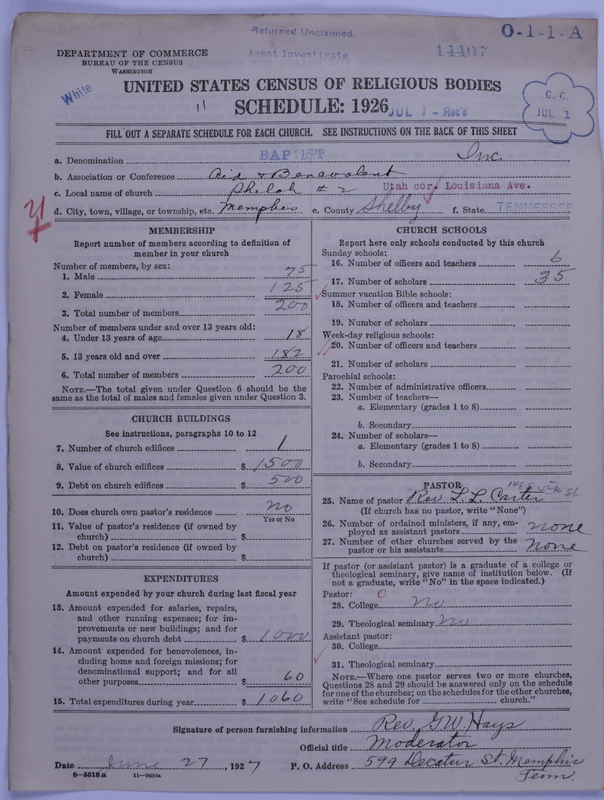 Returned Unclaimed.
O-1-1-A
Agent Investigate
14407
DEPARTMENT OF COMMERCE
BUREAU OF THE CENSUS
WASHINGTON
White
UNITED STATES CENSUS OF RELIGIOUS BODIES
11
SCHEDULE: 1926
JUL 1 - Rec'd
C. C.
JUL 1
FILL OUT A SEPARATE SCHEDULE FOR EACH CHURCH. SEE INSTRUCTIONS ON THE BACK OF THIS SHEET
a. Denomination BAPTIST Inc.
b. Association or Conference Aid & Benevolent
c. Local name of church Philah # 2 Utah cor. Louisiana Ave.
d. City, town, village, or township, etc. Memphis e. County Shelby f. State TENNESSEE
MEMBERSHIP
Report number of members according to definition of
member in your church
Number of members, by sex:
1. Male 75
2. Female 125
3. Total number of members 200
Number of members under and over 13 years old:
4. Under 13 years of age 18
5. 13 years old and over 182
6. Total number of members 200
NOTE.—The total given under Question 6 should be the
same as the total of males and females given under Question 3.
CHURCH BUILDINGS
See instructions, paragraphs 10 to 12
7. Number of church edifices 1
8. Value of church edifices $1500
9. Debt on church edifices $500
10. Does church own pastor's residence no
Yes or No
11. Value of pastor's residence (if owned by
church) $
12. Debt on pastor's residence (if owned by
church) $
EXPENDITURES
Amount expended by your church during last fiscal year
13. Amount expended for salaries, repairs,
and other running expenses; for im-
provements or new buildings; and for
payments on church debt $1000
14. Amount expended for benevolences, in-
cluding home and foreign missions; for
denominational support; and for all
other purposes $ 60
15. Total expenditures during year $1060
CHURCH SCHOOLS
Report here only schools conducted by this church
Sunday schools:
16. Number of officers and teachers 6
17. Number of scholars 35
Summer vacation Bible schools:
18. Number of officers and teachers
19. Number of scholars
Week-day religious schools:
20. Number of officers and teachers
21. Number of scholars
Parochial schools:
22. Number of administrative officers
23. Number of teachers—
a. Elementary (grades 1 to 8)
b. Secondary
24. Number of scholars—
a. Elementary (grades 1 to 8)
b. Secondary
PASTOR
25. Name of pastor Rev. L. L. Carter
(If church has no pastor, write "None")
26. Number of ordained ministers, if any, em-
ployed as assistant pastors none
27. Number of other churches served by the
pastor or his assistants None
If pastor (or assistant pastor) is a graduate of a college or
theological seminary, give name of institution below. (If
not a graduate, write "No" in the space indicated.)
Pastor:
28. College No
29. Theological seminary No
Assistant pastor:
30. College
31. Theological seminary
NOTE.—Where one pastor serves two or more churches,
Questions 28 and 29 should be answered only on the schedule
for one of the churches; on the schedules for the other churches,
write "See schedule for church."
Signature of person furnishing information Rev. G.W. Hays
Official title Moderator
Date June 27, 1927 P. O. Address 599 Decatur St. Memphis
Tenn.
8-5518a 11-9054a